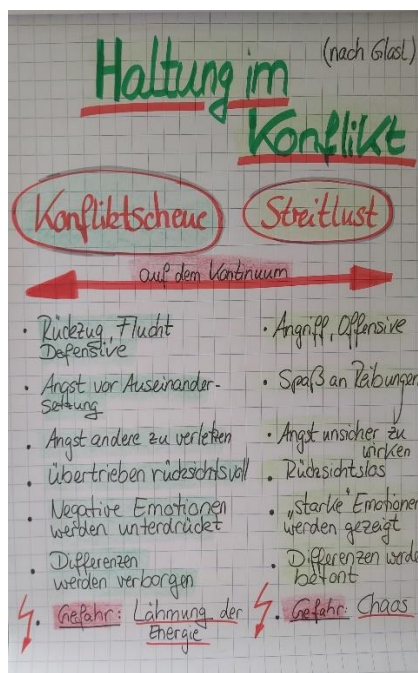 (nach Glasl)
Haltung im
Konflikt
Konfliktscheue
Streitlust
auf dem Kontinuum
• Rückzug, Flucht
Defensive
• Angst vor Auseinander-
setzung
• Angst andere zu verletzen
• übertrieben rücksichtsvoll
• Negative Emotionen
werden unterdrückt
• Differenzen
werden verborgen
• Gefahr: Lähmung der
Energie
• Angriff, Offensive
• Spaß an Reibungen
• Angst unsicher zu
wirken
• Rücksichtslos
• „starke" Emotionen
werden gezeigt
• Differenzen werde
betont
• Gefahr: Chaos